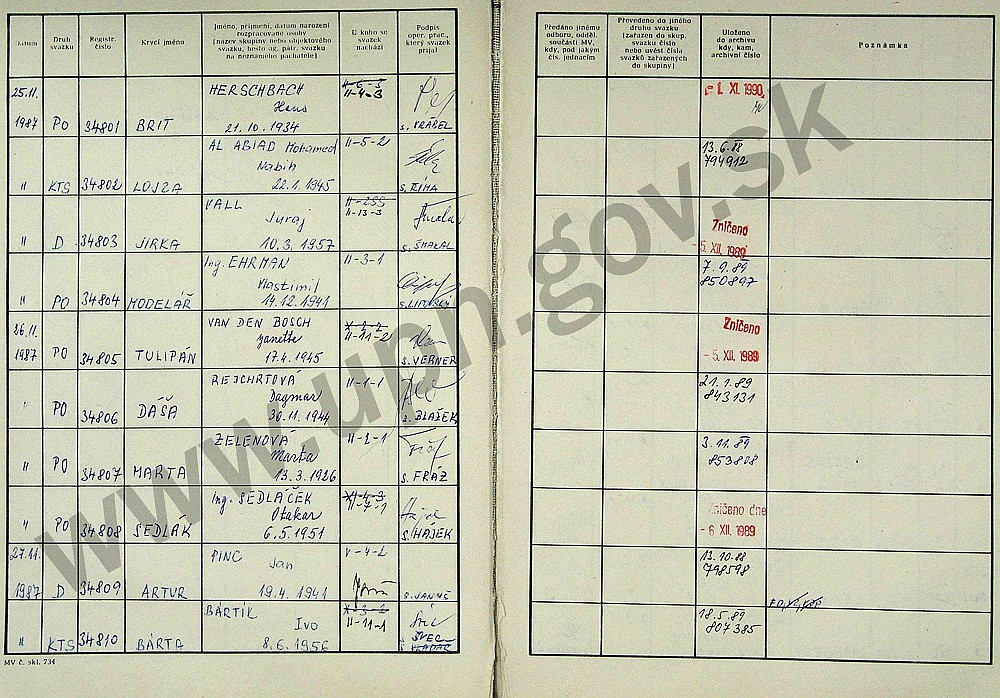 Datum
Druh svazku
Registr. číslo
Krycí jméno
Jméno, příjmení, datum narození
rozpracované osoby
(název skupiny nebo objektového
svazku, heslo ag. pátr. svazku
na neznámého pachatele)
U koho se
svazek
nachází
Podpis
oper. prac.,
který svazek
přijal
Předáno jinému
odboru, odděl.
součásti MV,
kdy, pod jakým
čís. jednacím
Převedeno do jiného
druhu svazku
(zařazen do skup.
svazku číslo
nebo uvést čísla
svazků zařazených
do skupiny)
Uloženo
do archivu
kdy, kam,
archivní číslo
Poznámka
25.11.
1987 PO 34801 BRIT
HERSCHBACH
Hans
21.10.1934
II-4-3
s. VRÁBEL
1. XI. 1990
" KTS 34802 LOJZA
AL ABIAD Mohamed
Nabih
22.1.1945
II-5-2
s. ŘÍHA
13.6.88
794912
" D 34803 JIRKA
VALL
Juraj
10.3.1957
II-255
II-13-3
s. ŠMAKAL
Zničeno
-5. XII. 1989
" PO 34804 MODELÁŘ
Ing. EHRMAN
Vlastimil
14.12.1941
II-3-1
s. LIPOVSKÝ
7.9.89
850897
26.11.
1987 PO 34805 TULIPÁN
VAN DEN BOSCH
Janette
17.4.1945
X-2-2
II-11-2
s. VERNER
Zničeno
-5. XII. 1989
" PO 34806 DÁŠA
REJCHRTOVÁ
Dagmar
30.11.1944
II-1-1
s. BLAŽEK
21.1.89
843131
" PO 34807 MARTA
ZELENOVÁ
Marta
13.3.1926
II-2-1
s. FRÁZ
3.11.89
853808
" PO 34808 SEDLÁK
Ing. SEDLÁČEK
Otakar
6.5.1951
XI-4-3
II-7-1
s. HÁJEK
Zničeno dne
-6 XII. 1989
27.11.
1987 D 34809 ARTUR
PINC Jan
19.4.1941
V-4-2
s. JANUŠ
13.10.88
798598
" KTS 34810 BÁRTA
BÁRTÍK
Ivo
8.6.1956
X-3-2
II-11-1
s. ŠVEC
18.5.89
807385
MV č. skl. 734
www.upn.gov.sk